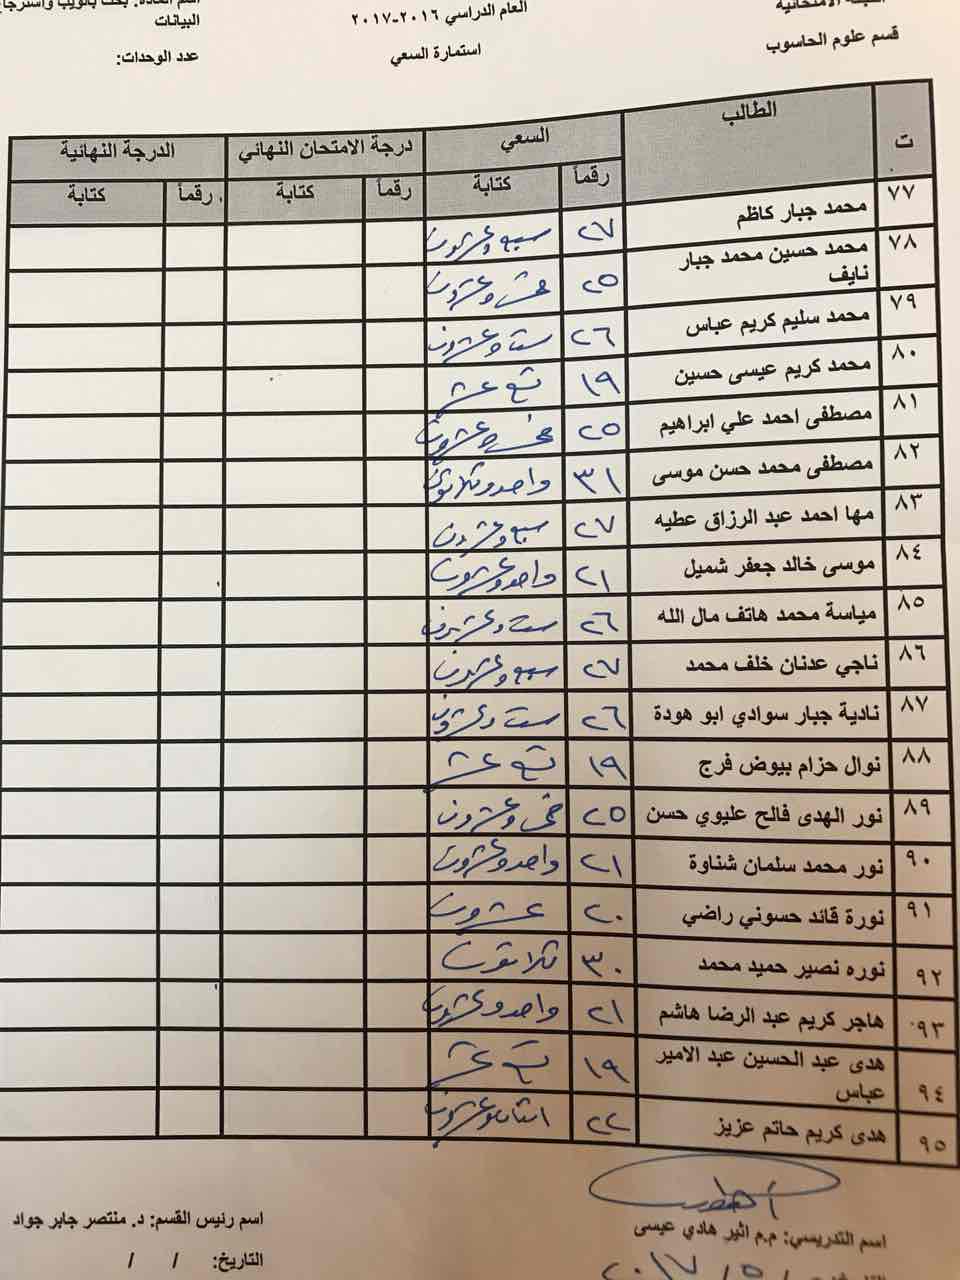 العام الدراسي ٢٠١٦-٢٠١٧
البيانات
قسم علوم الحاسوب
استمارة السعي
عدد الوحدات:
ت الطالب السعي درجة الامتحان النهائي الدرجة النهائية
رقماً كتابة رقماً كتابة رقماً كتابة
٧٧ محمد جبار كاظم ٢٧ سبع وعشرون
٧٨ محمد حسين محمد جبار نايف ٢٥ خمس وعشرون
٧٩ محمد سليم كريم عباس ٢٦ ستة وعشرون
٨٠ محمد كريم عيسى حسين ١٩ تسع عشر
٨١ مصطفى احمد علي ابراهيم ٢٥ خمس وعشرون
٨٢ مصطفى محمد حسن موسى ٣١ واحد وثلاثون
٨٣ مها احمد عبد الرزاق عطيه ٢٧ سبع وعشرون
٨٤ موسى خالد جعفر شميل ٢١ واحد وعشرون
٨٥ مياسة محمد هاتف مال الله ٢٦ ستة وعشرون
٨٦ ناجي عدنان خلف محمد ٢٧ سبع وعشرون
٨٧ نادية جبار سوادي ابو هودة ٢٦ ستة وعشرون
٨٨ نوال حزام بيوض فرج ١٩ تسع عشر
٨٩ نور الهدى فالح عليوي حسن ٢٥ خمس وعشرون
٩٠ نور محمد سلمان شناوة ٢١ واحد وعشرون
٩١ نورة قائد حسوني راضي ٢٠ عشرون
٩٢ نوره نصير حميد محمد ٣٠ ثلاثون
٩٣ هاجر كريم عبد الرضا هاشم ٢١ واحد وعشرون
٩٤ هدى عبد الحسين عبد الامير عباس ١٩ تسع عشر
٩٥ هدى كريم حاتم عزيز ٢٢ اثنان وعشرون
اسم التدريسي: م.م اثير هادي عيسى
اسم رئيس القسم: د. منتصر جابر جواد
التاريخ: / /